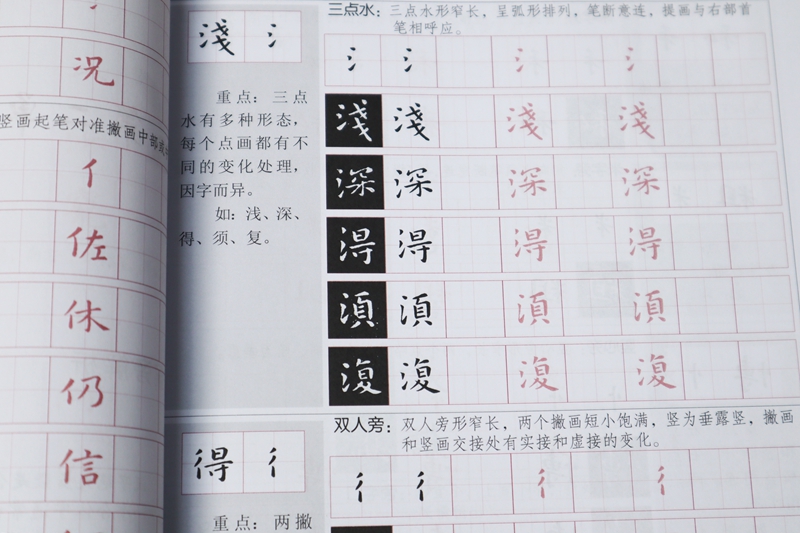 况
竖画起笔对准撇画中部
亻
佐
休
仍
信
淺 氵
重点：三点
水有多种形态，
每个点画都有不
同的变化处理，
因字而异。
如：浅、深、
得、须、复。
三点水：三点水形窄长，呈弧形排列，笔断意连，提画与右部首
笔相呼应。
氵 氵 氵 氵
淺 淺 淺 淺
深 深 深 深
淂 淂 淂 淂
湏 湏 湏 湏
澓 澓 澓 澓
得 彳
重点：两撇
双人旁：双人旁形窄长，两个撇画短小饱满，竖为垂露竖，撇画
和竖画交接处有实接和虚接的变化。
彳 彳 彳 彳